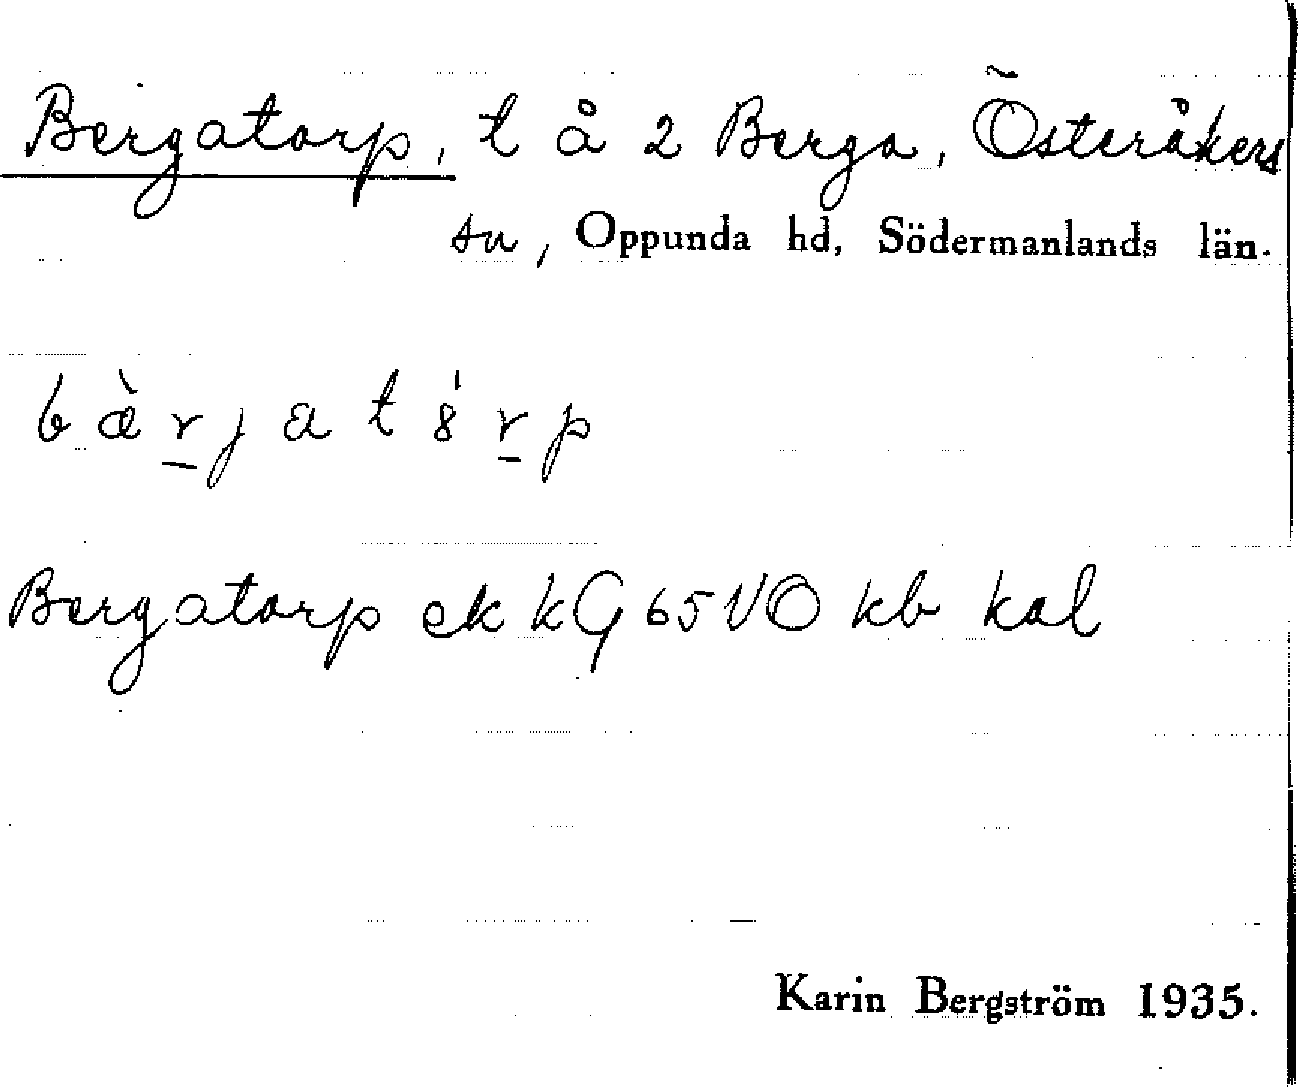 Bergatorp, t å 2 Berga, Österåkers
sn, Oppunda hd, Södermanlands län.
b æ̀ r̲ j a t 8́ r̲ p
Bergatorp ek kG 65 VÖ kb kal
Karin Bergström 1935.